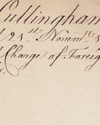 Cullingham
21st Novemr. 1
Change of Foreig